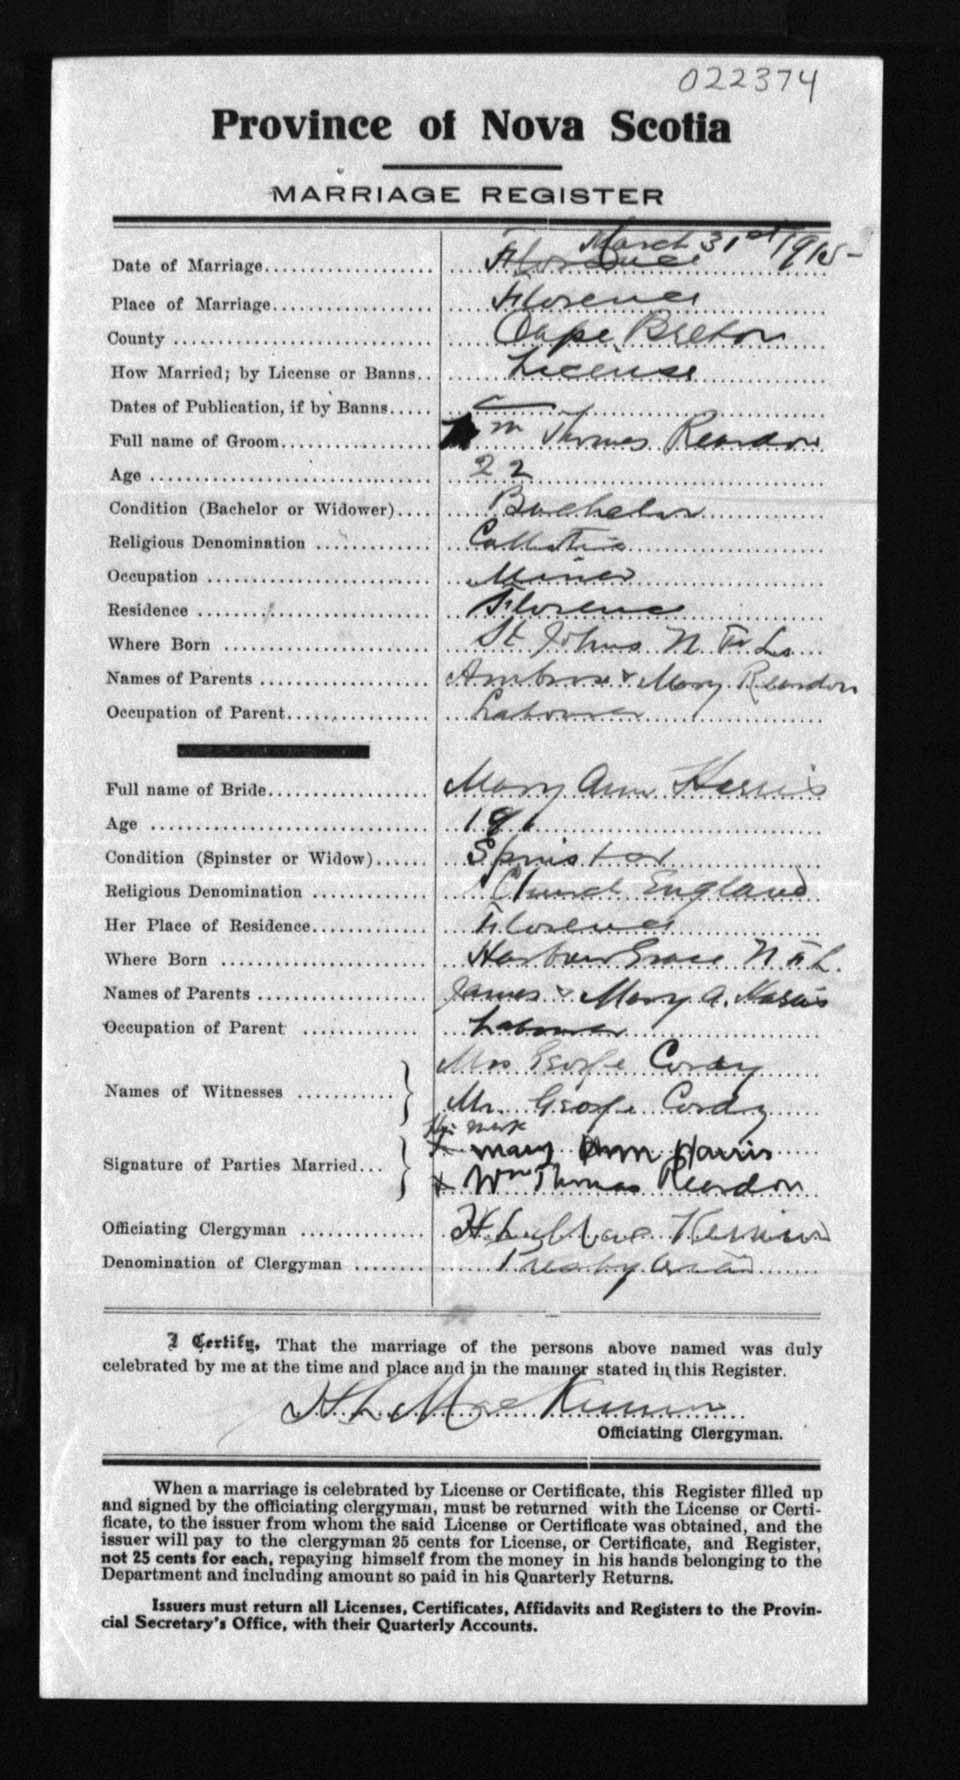 022374
Province of Nova Scotia
MARRIAGE REGISTER
March 31st 1915
Date of Marriage.................... Florence
Place of Marriage................... Florence
County .............................. Cape Breton
How Married; by License or Banns.. License
Dates of Publication, if by Banns..... —
Full name of Groom.................. Wm Thomas Reardon
Age .............................. 22
Condition (Bachelor or Widower).... Bachelor
Religious Denomination ............. Catholic
Occupation ......................... Miner
Residence .......................... Florence
Where Born ........................ St Johns N. F. L.
Names of Parents ................... Ambrose & Mary Reardon
Occupation of Parent................ Labourer
Full name of Bride.................. Mary Ann Harris
Age ............................... 19
Condition (Spinster or Widow)...... Spinster
Religious Denomination ............. Church England
Her Place of Residence.............. Florence
Where Born ........................ Harbour Grace N F L.
Names of Parents ................... James & Mary A. Harris
Occupation of Parent .............. Labourer
Mrs George Corday
Names of Witnesses ............
Mr. George Corday
mark
x Mary Ann Harris
Signature of Parties Married...
x Wm Thomas Reardon
Officiating Clergyman ............. H L MacKinnon
Denomination of Clergyman ........ Presbyterian
I Certify, That the marriage of the persons above named was duly
celebrated by me at the time and place and in the manner stated in this Register.
H L MacKinnon
Officiating Clergyman.
When a marriage is celebrated by License or Certificate, this Register filled up
and signed by the officiating clergyman, must be returned with the License or Certi-
ficate, to the issuer from whom the said License or Certificate was obtained, and the
issuer will pay to the clergyman 25 cents for License, or Certificate, and Register,
not 25 cents for each, repaying himself from the money in his hands belonging to the
Department and including amount so paid in his Quarterly Returns.
Issuers must return all Licenses, Certificates, Affidavits and Registers to the Provin-
cial Secretary's Office, with their Quarterly Accounts.